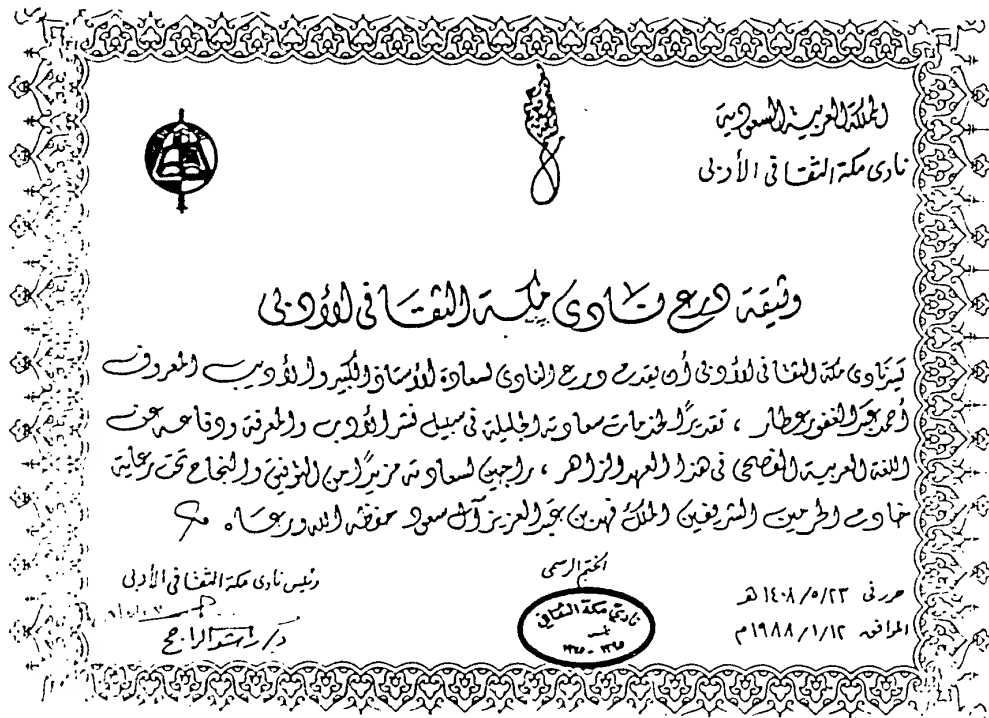 المملكة العربية السعودية
نادى مكة الثقافى الأدبى
وثيقة درع نادى مكة الثقافى الأدبى
يسر نادى مكة الثقافى الأدبى أن يقدم درع النادى لسعادة الأستاذ الكبير والأديب المعروف
أحمد عبد الغفور عطار ، تقديرًا لخدمات سعادته الجليلة فى سبيل نشر الأدب والمعرفة ودفاعه عن
اللغة العربية الفصحى فى هذا العهد الزاهر ، راجين لسعادته مزيدًا من التوفيق والنجاح تحت رعاية
خادم الحرمين الشريفين الملك فهد بن عبد العزيز آل سعود حفظه الله ورعاه .
حرر فى ١٤٠٨/٥/٢٣ هـ
الموافق ١٩٨٨/١/١٢ م
الختم الرسمى
نادي مكة الثقافي
رئيس نادى مكة الثقافى الأدبى
د/ راشد الراجح